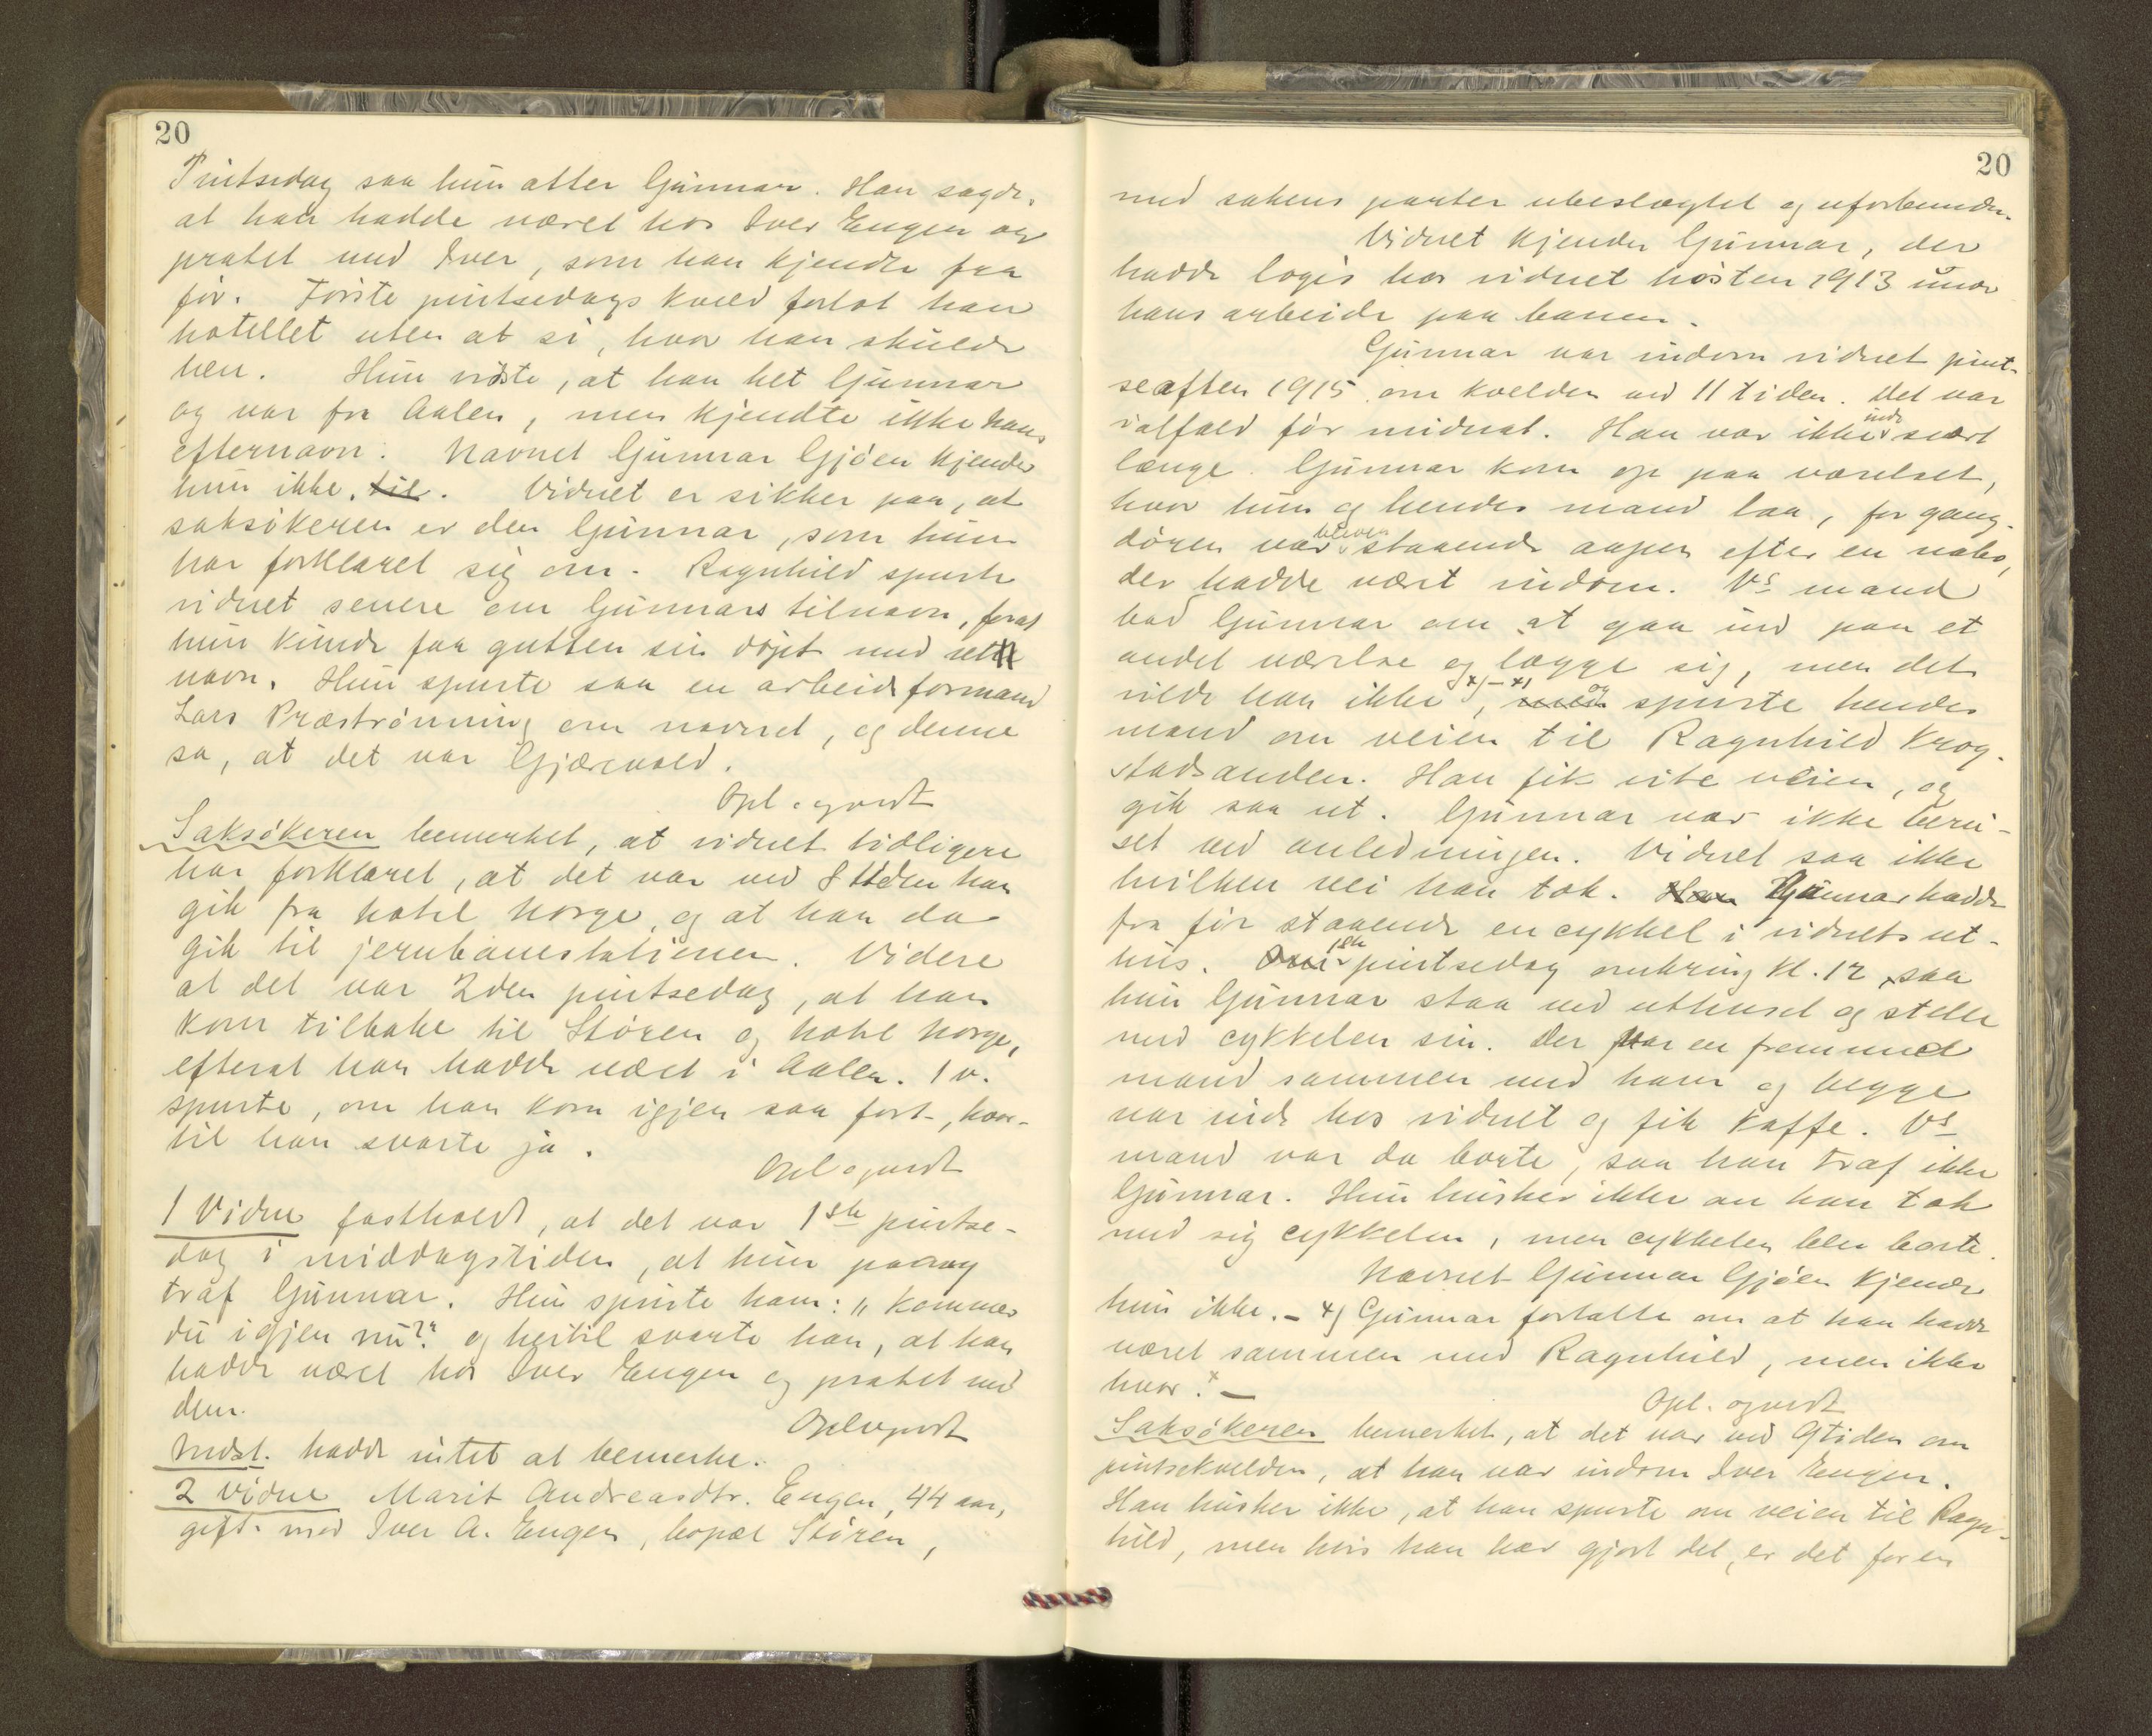 20
Pintsedag saa hun atter Gunnar. Han sagde,
at han hadde været hos Iver Engen og
pratet med Iver, som han kjendte fra
før. Første pintsedags kveld forlot han
hotellet uten at si, hvor han skulde
hen. Hun visste, at han het Gunnar
og var fra Aalen, men kjendte ikke hans
efternavn. Navnet Gunnar Gjøen kjender
hun ikke. til. Vidnet er sikker paa, at
saksøkeren er den Gunnar, som hun
har forklaret sig om. Ragnhild spurte
vidnet senere om Gunnars tilnavn, forat
hun kunde faa gutten sin døpt med rett
navn. Hun spurte saa en arbeidsformand
Lars Præstrønning om navnet, og denne
sa, at det var Gjærevold.
Opl. ogvedt
Saksøkeren bemerket, at vidnet tidligere
har forklaret, at det var ved 8 tiden han
gik fra hotel Norge, og at han da
gik til jernbanestationen. Videre
at det var 2den pintsedag, at han
kom tilbake til Støren og hotel Norge,
efterat han hadde været i Aalen. 1 v.
spurte, om han kom igjen saa fort, hvor-
til han svarte ja.
Opl ogvedt
1 Vidne fastholdt, at det var 1ste pintse-
dag i middagstiden, at hun paany
traf Gunnar. Hun spurte ham: "Kommer
du igjen nu?" og hertil svarte han, at han
hadde været hos Iver Engen og pratet med
dem.
Oplogvedt
Indst. hadde intet at bemerke.
2 vidne Marit Andreasdtr. Engen, 44 aar,
gift med Iver A. Engen, bopæl Støren,
20
med sakens parter ubeslægtet og uforbunden.
Vidnet kjender Gunnar, der
hadde logis hos vidnet høsten 1913 under
hans arbeide paa banen.
Gunnar var indom vidnet pint-
seaften 1915 om kvelden ved 11 tiden. Det var
ialfald før midnat. Han var ikke inde svært
længe. Gunnar kom op paa værelset,
hvor hun og hendes mand laa, for gang-
døren var bleven staaende aapen efter en nabo,
der hadde vært indom. Vs mand
bad Gunnar om at gaa ind paa et
andet værelse og lægge sig, men det
vilde han ikke x)-x), men og spurte hendes
mand om veien til Ragnhild Krog-
stadsanden. Han fik vite veien, og
gik saa ut. Gunnar var ikke beru-
set ved anledningen. Vidnet saa ikke
hvilken vei han tok. Han Gunnar hadde
fra før staaende en cykkel i vidnets ut-
hus. 1ste pintsedag omkring kl. 12 saa
hun Gunnar staa ved uthuset og stelle
med cykkelen sin. Der var en fremmed
mand sammen med ham og begge
var inde hos vidnet og fik kaffe. Vs
mand var da borte, saa han traf ikke
Gunnar. Hun husker ikke om han tok
med sig cykkelen, men cykkelen blev borte.
Navnet Gunnar Gjøen kjender
hun ikke. - x) Gunnar fortalte om at han hadde
været sammen med Ragnhild, men ikke
hvor. x -
Opl. ogvedt
Saksøkeren bemerket, at det var ved 9tiden om
pintsekvelden, at han var indom Iver Engen.
Han husker ikke, at han spurte om veien til Ragn-
hild, men hvis han har gjort det, er det for en